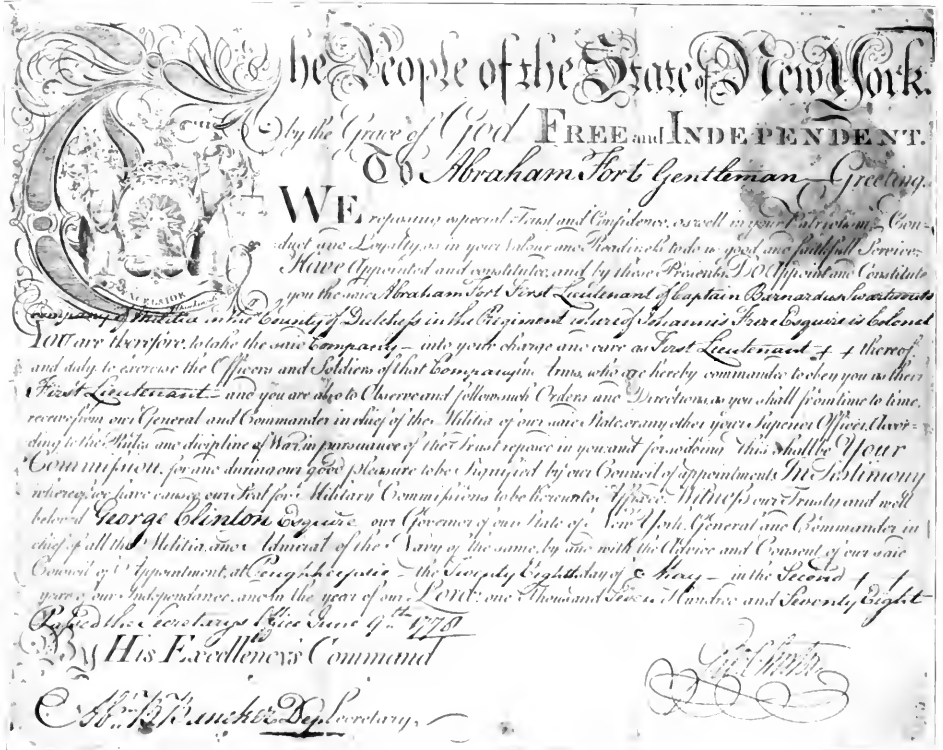 The People of the State of New York.
by the Grace of God FREE and INDEPENDENT.
To Abraham Fort Gentleman — Greeting.
WE reposing especial Trust and Confidence, as well in your Patriotism, Con-
duct and Loyalty, as in your Valour and Readiness to do us good and faithfull Service;
Have Appointed and constituted, and by these Presents, DO Appoint and Constitute
you the said Abraham Fort First Lieutenant of Captain Barnardus Swartwouts
EXCELSIOR
Company of Militia in the County of Dutchess in the Regiment where of Johannis Frere Esquire is Colonel
YOU are therefore, to take the said Company — into your charge and care as First Lieutenant + + thereof,
and duly to exercise the Officers and Soldiers of that Company in Arms, who are hereby commanded to obey you as their
First Lieutenant — and you are also to Observe and follow such Orders and Directions, as you shall from time to time,
receive from our General and Commander in chief of the Militia of our said State, or any other your Superior Officer, Accor-
ding to the Rules and discipline of War, in pursuance of the Trust reposed in you, and for so doing this shall be Your
Commission, for and during our good pleasure to be Signified by our Council of appointment. In Testimony
whereof, we have caused our Seal for Military Commissions to be hereunto Affixed. Witness our Trusty and well
beloved George Clinton Esquire our Governor of our State of New York, General and Commander in
chief of all the Militia, and Admiral of the Navy of the same, by and with the Advice and Consent of our said
Council of Appointment, at Poughkeepsie — the Twenty Eighth day of May — in the Second + +
year of our Independance, and in the year of our Lord, one Thousand Seven Hundred and Seventy Eight
Passed the Secretarys Office June 9th 1778
By His Excellency's Command
Geo Clinton
Abm B Bancker Dep Secretary